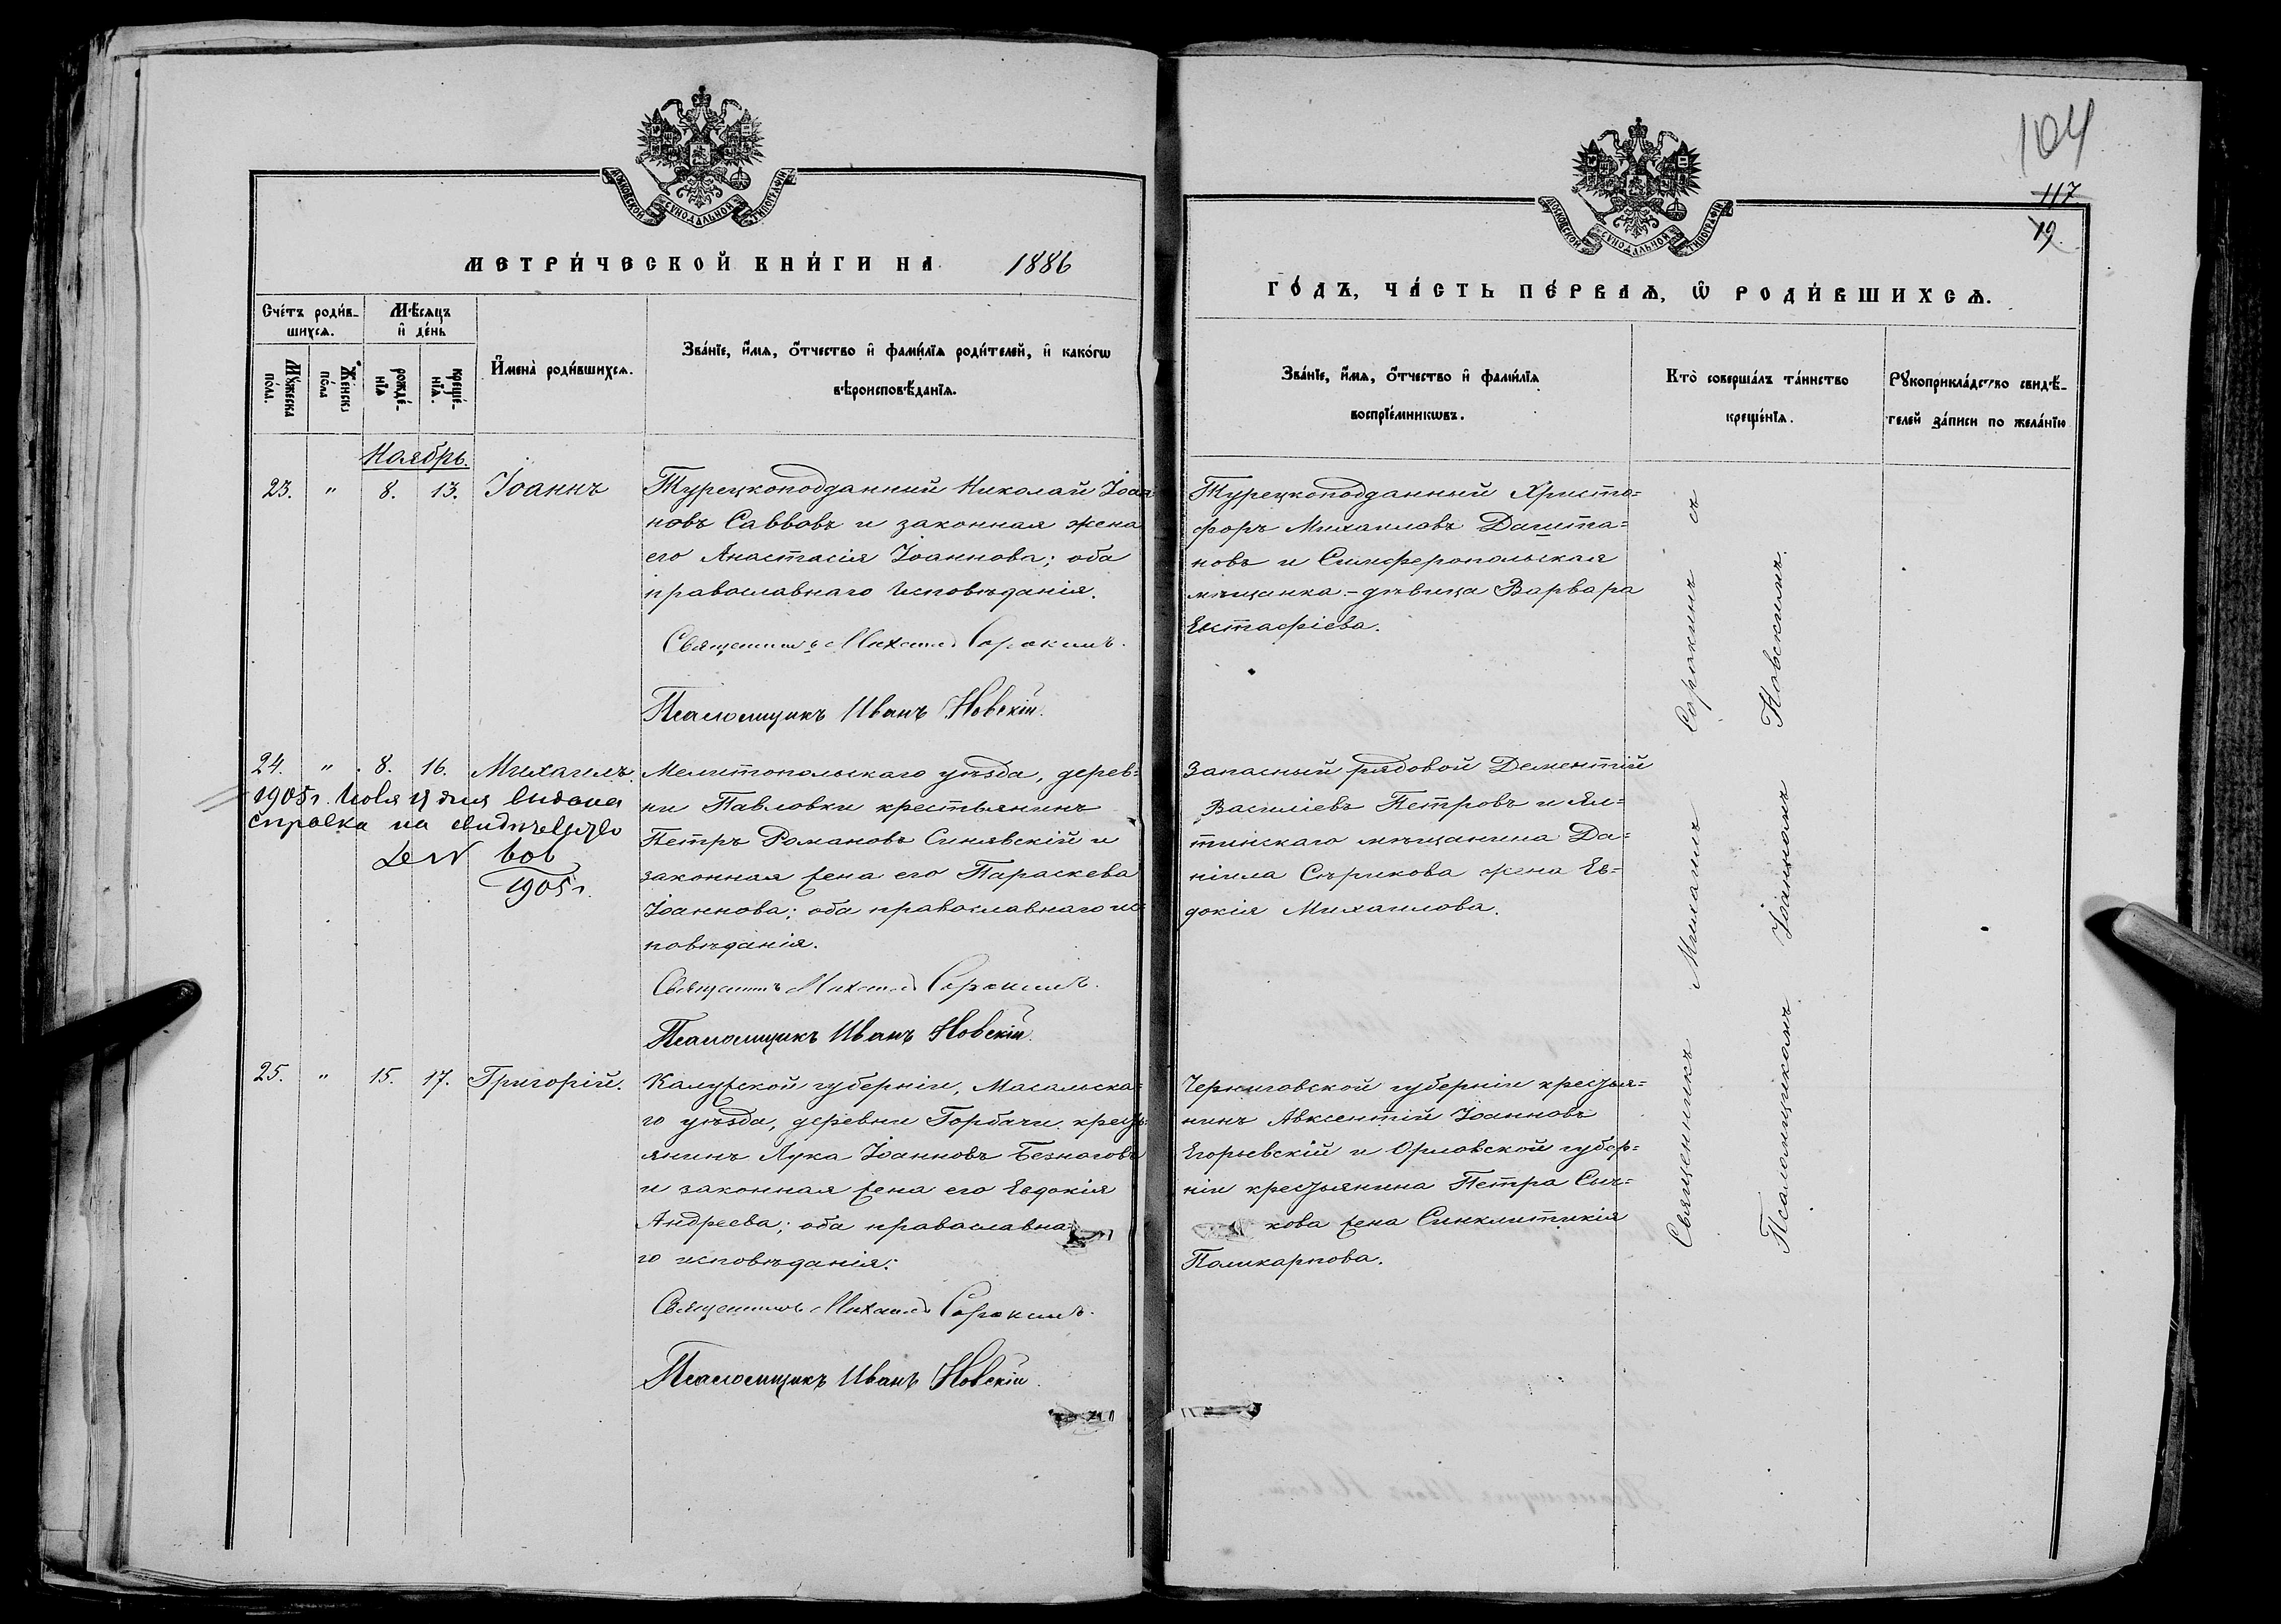 МОСКОВСКОЙ СУНОДАЛЬНОЙ ТИПОГРАФІИ
МЕТРИ́ЧЕСКОЙ КНИ́ГИ НА 1886
Сче́тъ роди́в-
шихсѧ.
Мѣ́сѧцъ
и҆ де́нь
Мꙋ́жеска
по́ла.
Же́нска
по́ла
рожде́-
нїѧ
креще́-
нїѧ.
И҆мена̀ роди́вшихсѧ.
Зва́нїе, и҆́мѧ, о҆́тчество и҆ фами́лїѧ роди́телей, и҆ како́гѡ
вѣроисповѣ́данїѧ.
Ноябрь.
23. " 8. 13. Іоаннъ
Турецкоподданный Николай Іоан
новъ Саввовъ и законная жена
его Анастасія Іоаннова; оба
православнаго исповѣданія.
Священникъ Михаилъ Сорокинъ.
Псаломщикъ Иванъ Новскій.
24. " 8. 16. Михаилъ.
1905 г. Июля дня выдана
справка на
1905 г.
Мелитопольскаго уѣзда, дерев-
ни Павловки крестьянинъ
Петръ Романовъ Синявскій и
законная жена его Параскева
Іоаннова; оба православнаго ис-
повѣданія.
Священникъ Михаилъ Сорокинъ.
Псаломщикъ Иванъ Новскій.
25. " 15. 17. Григорій.
Калужской губерніи, Масальска-
го уѣзда, деревни Горбачи крестъ-
янинъ Лука Іоанновъ Безноговъ
и законная жена его Евдокія
Андреева; оба православна-
го исповѣданія.
Священникъ Михаилъ Сорокинъ.
Псаломщикъ Иванъ Новскій.
104
117
19.
МОСКОВСКОЙ СУНОДАЛЬНОЙ ТИПОГРАФІИ
ГО́ДЪ, ЧА́СТЬ ПЕ́РВАѦ, Ѡ҆ РОДИ́ВШИХСѦ.
Зва́нїе, и҆́мѧ, о҆́тчество и҆ фами́лїѧ
воспрїе́мникѡвъ.
Кто̀ соверша́лъ та́инство
креще́нїѧ.
Рꙋкоприкла́дство свидѣ́-
телей за́писи по жела́нїю
Турецкоподданный Христо-
форъ Михаиловъ Дашта-
новъ и Симферопольская
мѣщанка - дѣвица Варвара
Евстафіева.
Запасный рядовой Дементій
Василіевъ Петровъ и Ял-
тинскаго мѣщанина Да-
ніила Сѣрикова жена Ев-
докія Михаилова.
Черниговской губерніи крестья-
нинъ Авксентій Іоанновъ
Егорьевскій и Орловской губер-
ніи крестьянина Петра Сыч-
кова жена Синклитикія
Поликарпова.
Священникъ Михаилъ Сорокинъ съ
Псаломщикомъ Іоанномъ Новскимъ.